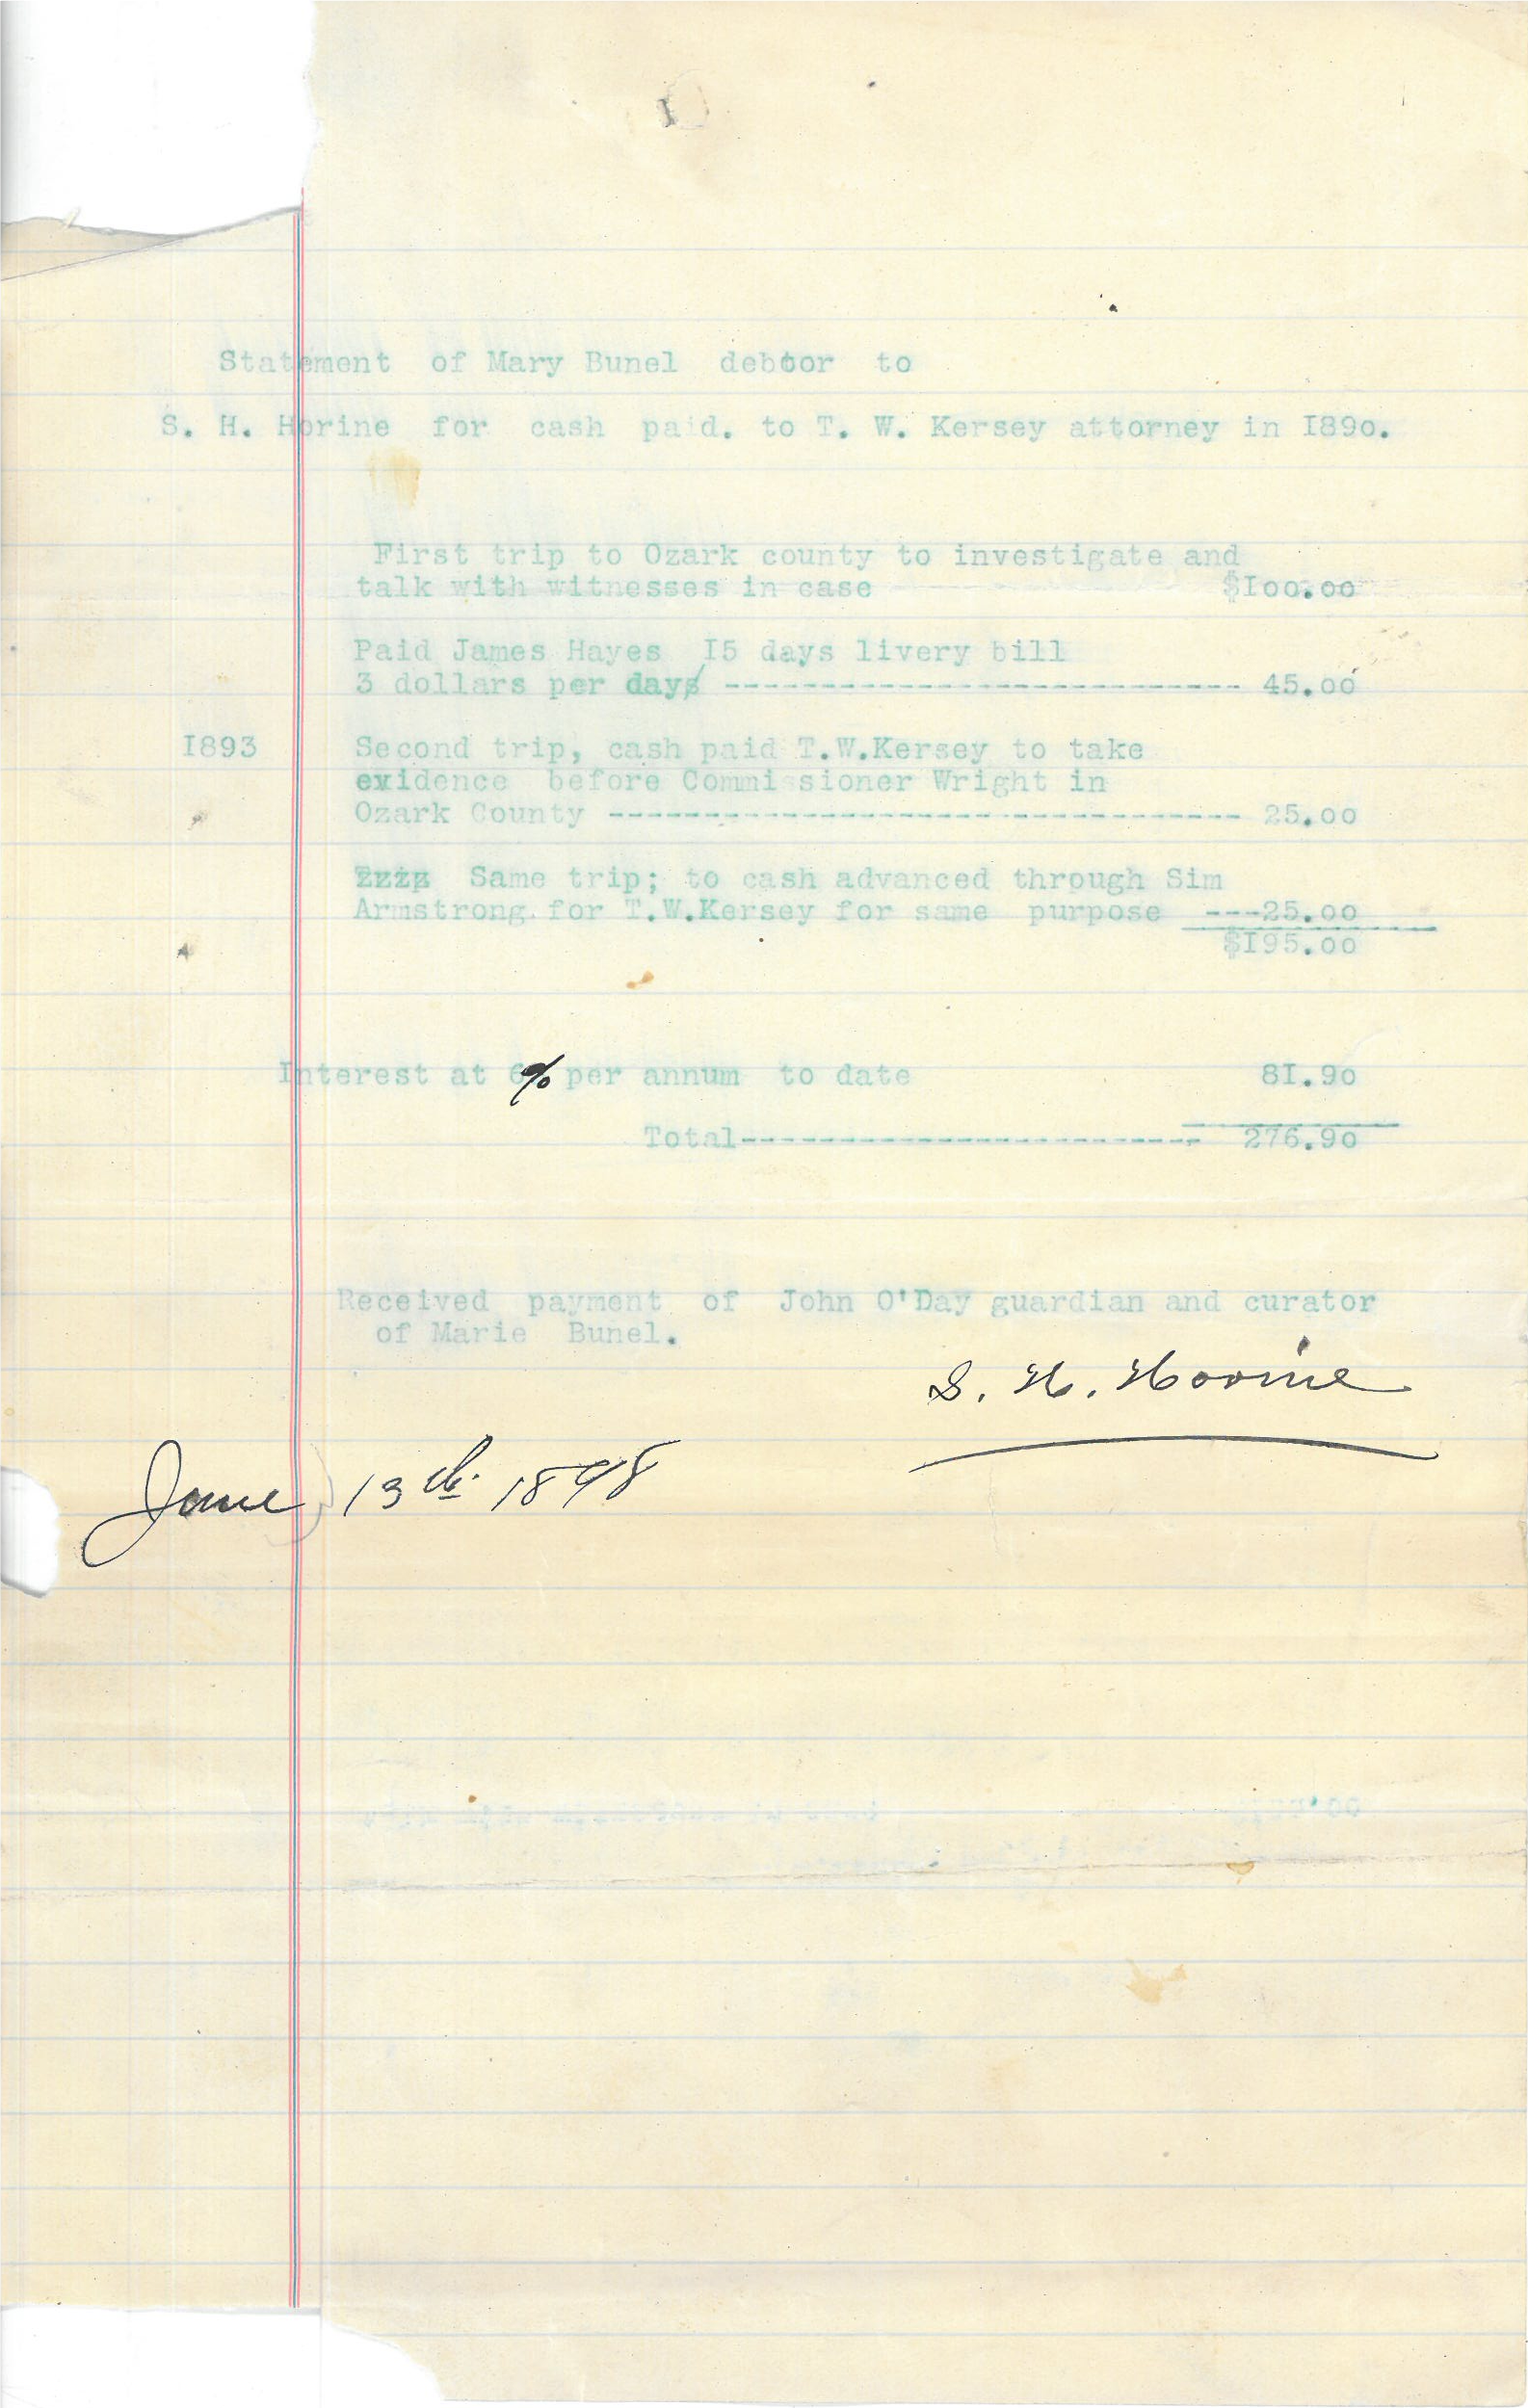 Statement of Mary Bunel debtor to
S. H. Horine for cash paid. to T. W. Kersey attorney in I890.
First trip to Ozark county to investigate and
talk with witnesses in case $I00.00
Paid James Hayes I5 days livery bill
3 dollars per day ---------------------------- 45.00
I893 Second trip, cash paid T.W.Kersey to take
evidence before Commissioner Wright in
Ozark County --------------------------------- 25.00
Same trip; to cash advanced through Sim
Armstrong for T.W.Kersey for same purpose ---25.00
$I95.00
Interest at 6% per annum to date 8I.90
Total------------------------ 276.90
Received payment of John O'Day guardian and curator
of Marie Bunel.
S. H. Horine
June 13th 1898